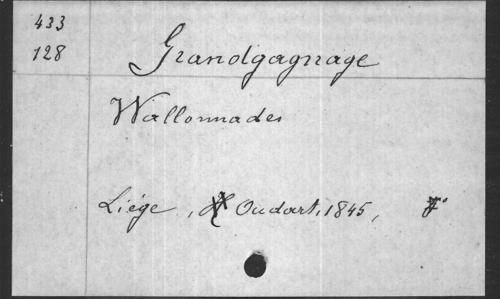 433
128
Grandgagnage
Wallonnades
Liége, Oudart, 1845,